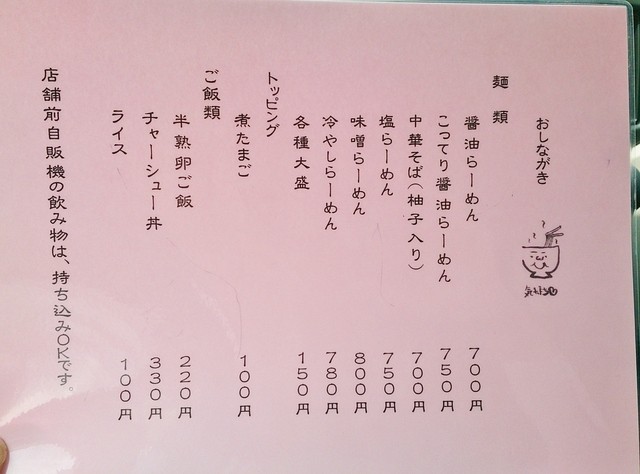 おしながき
麺類
醤油らーめん 700円
こってり醤油らーめん 750円
中華そば(柚子入り) 700円
塩らーめん 750円
味噌らーめん 800円
冷やしらーめん 780円
各種大盛 150円
トッピング
煮たまご 100円
ご飯類
半熟卵ご飯 220円
チャーシュー丼 330円
ライス 100円
店舗前自販機の飲み物は、持ち込みOKです。